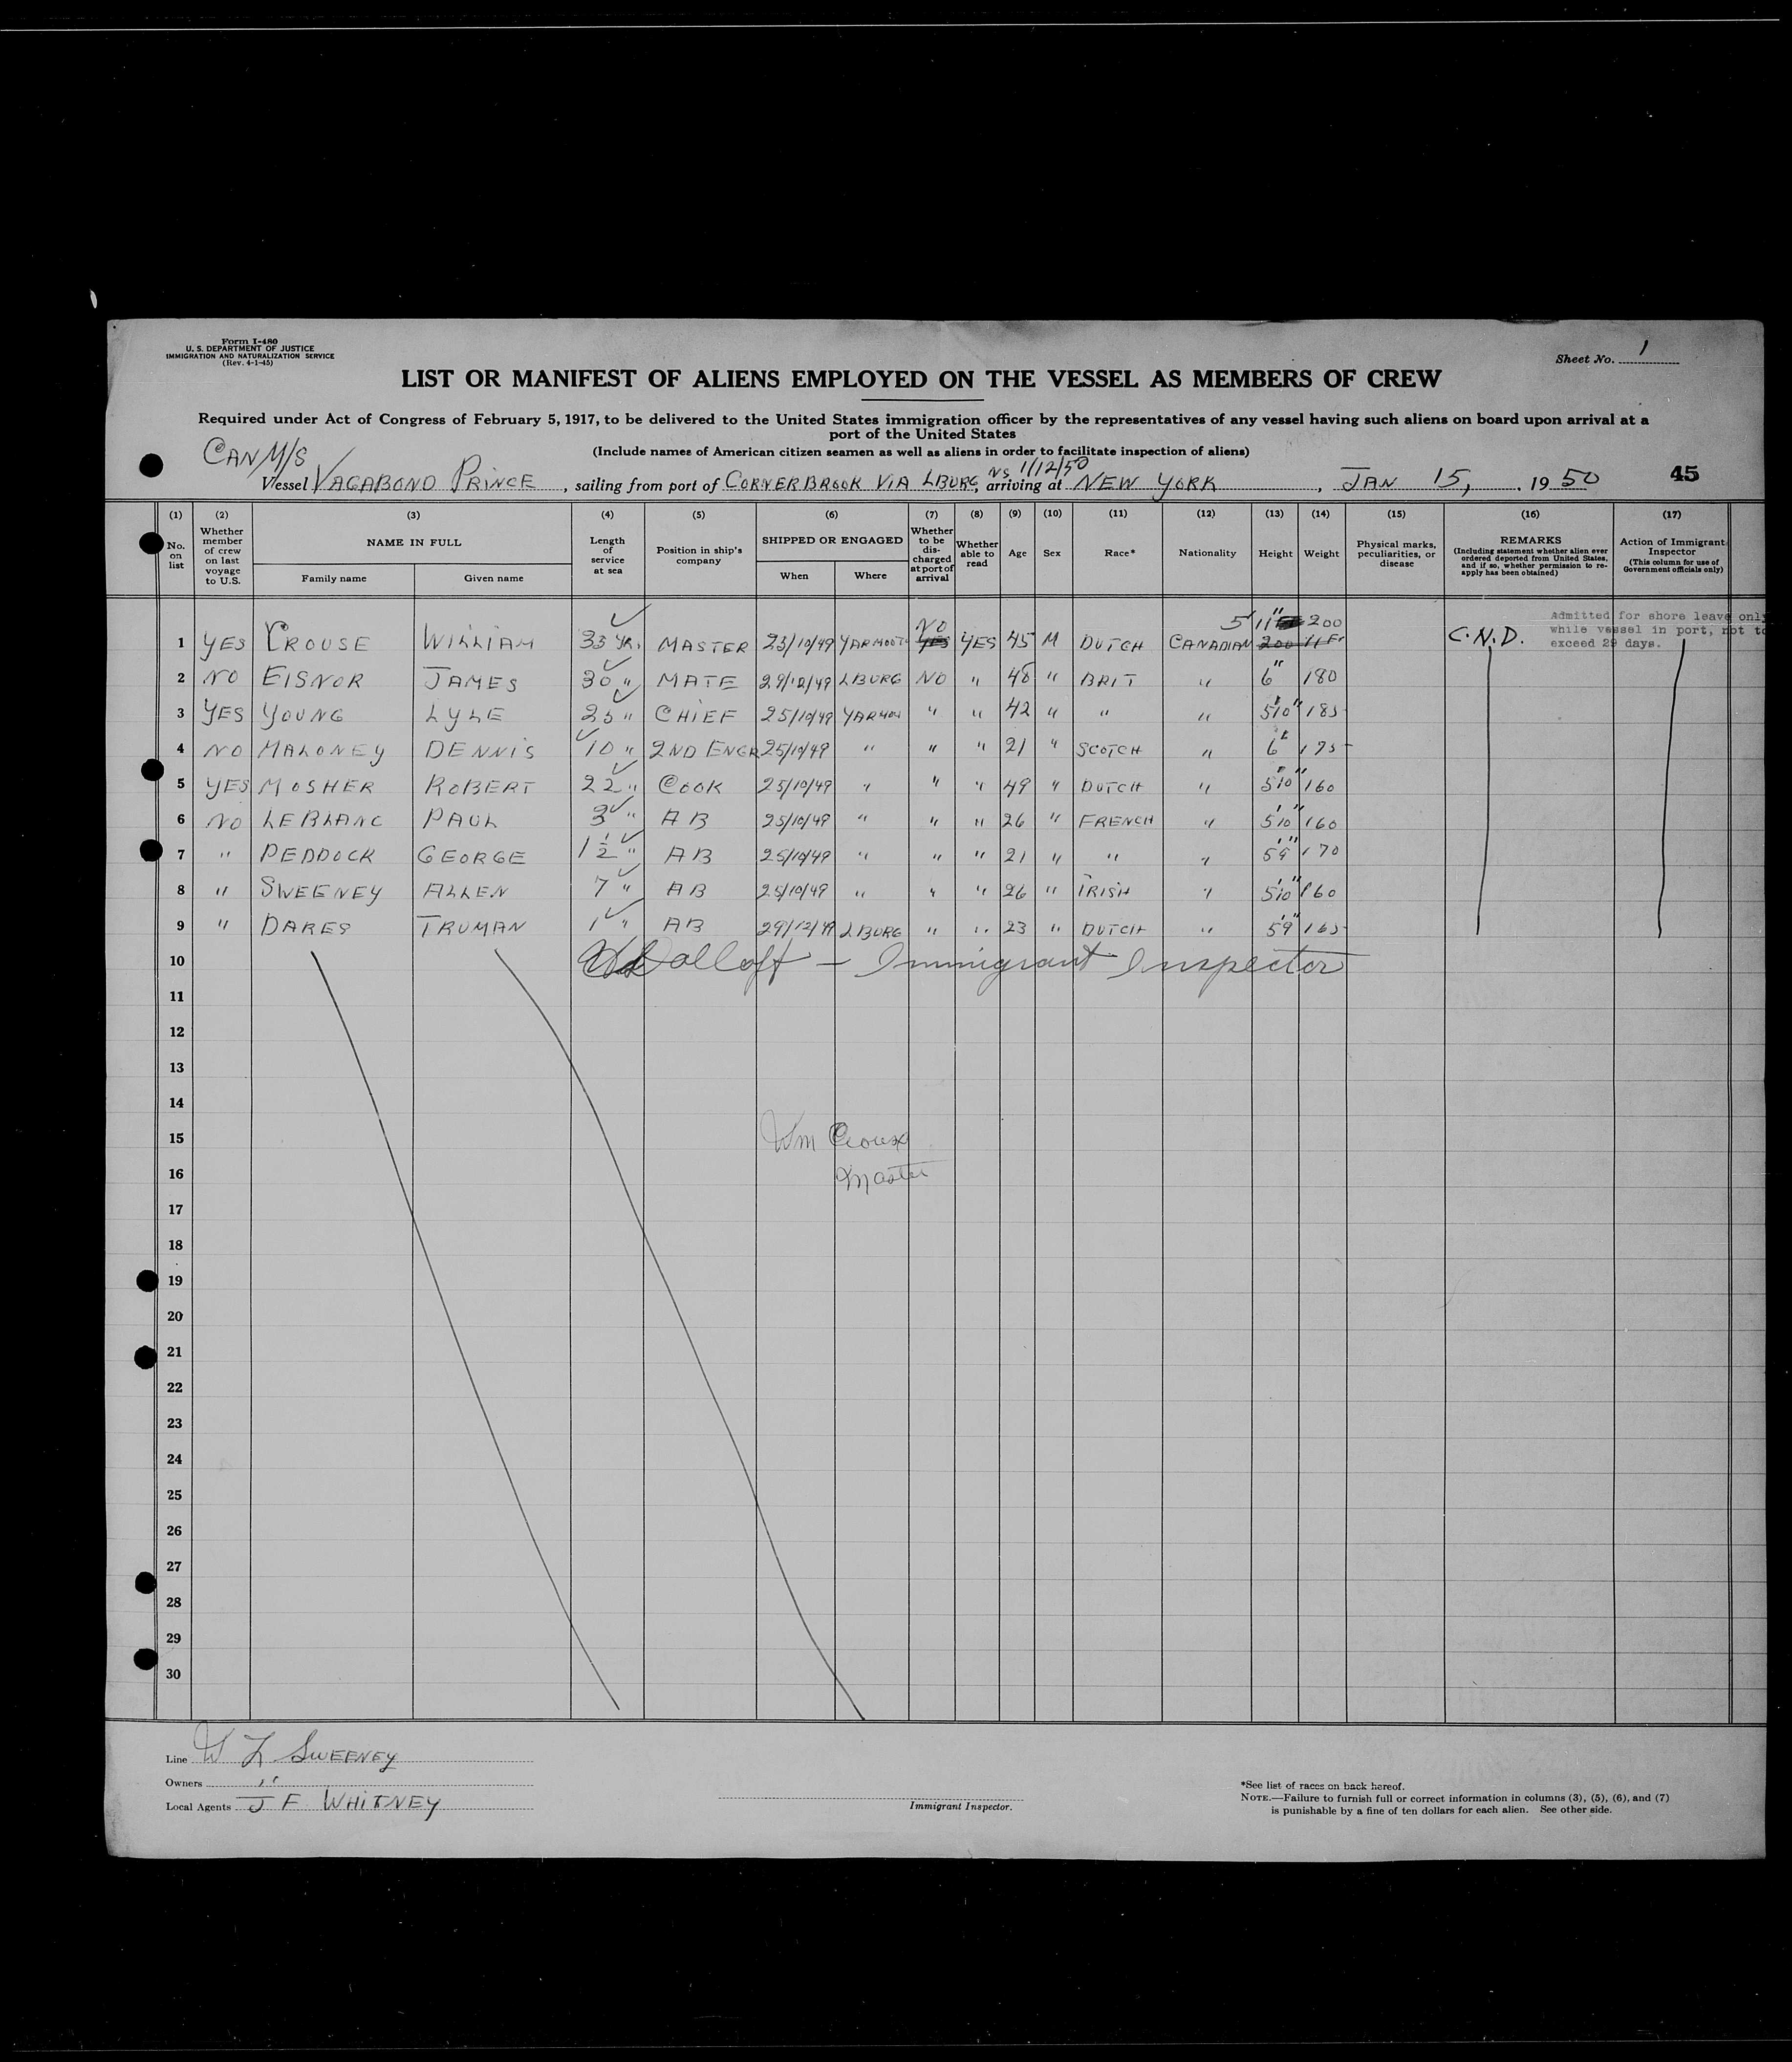 Form I-480
U. S. DEPARTMENT OF JUSTICE
IMMIGRATION AND NATURALIZATION SERVICE
(Rev. 4-1-45)
Sheet No. 1
LIST OR MANIFEST OF ALIENS EMPLOYED ON THE VESSEL AS MEMBERS OF CREW
Required under Act of Congress of February 5, 1917, to be delivered to the United States immigration officer by the representatives of any vessel having such aliens on board upon arrival at a
port of the United States
(Include names of American citizen seamen as well as aliens in order to facilitate inspection of aliens)
CAN M/S
NS 1/12/50
Vessel VAGABOND PRINCE, sailing from port of CORNERBROOK VIA LBURG, arriving at NEW YORK, JAN 15, 1950 45
(1) (2) (3) (4) (5) (6) (7) (8) (9) (10) (11) (12) (13) (14) (15) (16) (17)
No. on list
Whether member of crew on last voyage to U.S.
NAME IN FULL
Family name Given name
Length of service at sea
Position in ship's company
SHIPPED OR ENGAGED
When Where
Whether to be discharged at port of arrival
Whether able to read
Age Sex Race* Nationality Height Weight
Physical marks, peculiarities, or disease
REMARKS
(Including statement whether alien ever ordered deported from United States, and if so, whether permission to reapply has been obtained)
Action of Immigrant Inspector
(This column for use of Government officials only)
Admitted for shore leave only
while vessel in port, not to
exceed 29 days.
1 YES CROUSE WILLIAM 33 YR. MASTER 23/10/49 YARMOOT NO YES YES 45 M DUTCH CANADIAN 5 11" 200 C.N.D.
2 NO EISNOR JAMES 30 " MATE 29/12/49 LBURG NO " 48 " BRIT " 6" 180
3 YES YOUNG LYLE 25 " CHIEF 25/10/49 YARMOU " " 42 " " " 5'10" 185
4 NO MALONEY DENNIS 10 " 2ND ENGR 25/10/49 " " " 21 " SCOTCH " 6' 175
5 YES MOSHER ROBERT 22 " COOK 25/10/49 " " " 49 " DUTCH " 5'10" 160
6 NO LEBLANC PAUL 3 " AB 25/10/49 " " " 26 " FRENCH " 5'10" 160
7 " PEDDOCK GEORGE 1 1/2 " AB 25/10/49 " " " 21 " " " 5'9" 170
8 " SWEENEY ALLEN 7 " AB 25/10/49 " " " 26 " IRISH " 5'10" 160
9 " DARES TRUMAN 1 " AB 29/12/49 LBURG " " 23 " DUTCH " 5'9" 165
10 - Immigrant Inspector
11
12
13
14
15 Wm Crouse
16 Master
17
18
19
20
21
22
23
24
25
26
27
28
29
30
Line W L SWEENEY
Owners "
Local Agents J F WHITNEY
Immigrant Inspector.
*See list of races on back hereof.
NOTE.—Failure to furnish full or correct information in columns (3), (5), (6), and (7)
is punishable by a fine of ten dollars for each alien. See other side.